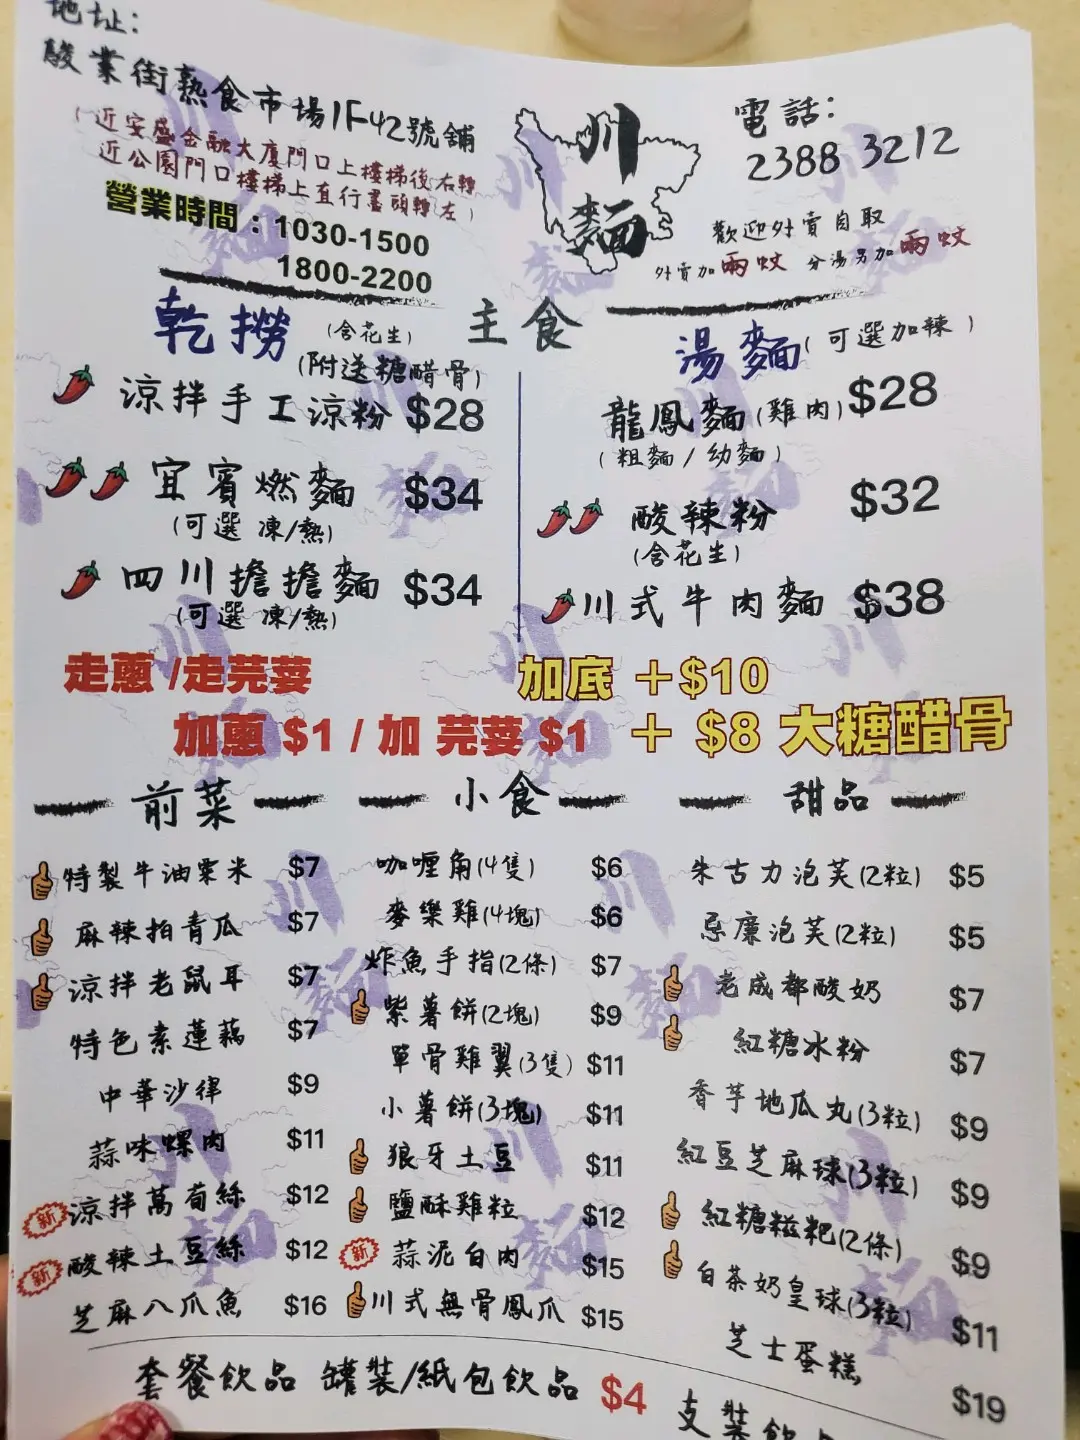 地址:
駿業街熟食市場1F42號舖
(近安盛金融大廈門口上樓梯後右轉
近公園門口樓梯上直行盡頭轉左)
營業時間：1030-1500
1800-2200
川麵
電話:
2388 3212
歡迎外賣自取
外賣加兩蚊 分湯另加兩蚊
主食
乾撈 (含花生)
(附送糖醋骨)
涼拌手工涼粉 $28
宜賓燃麵 $34
(可選 凍/熱)
四川擔擔麵 $34
(可選 凍/熱)
湯麵 (可選加辣)
龍鳳麵(雞肉) $28
(粗麵/幼麵)
酸辣粉 $32
(含花生)
川式牛肉麵 $38
走蔥/走芫荽
加蔥 $1 / 加 芫荽 $1
加底 +$10
+ $8 大糖醋骨
前菜
特製牛油粟米 $7
麻辣拍青瓜 $7
涼拌老鼠耳 $7
特色素蓮藕 $7
中華沙律 $9
蒜味螺肉 $11
新 涼拌萵荀絲 $12
新 酸辣土豆絲 $12
芝麻八爪魚 $16
小食
咖喱角(4隻) $6
麥樂雞(4塊) $6
炸魚手指(2條) $7
紫薯餅(2塊) $9
單骨雞翼(3隻) $11
小薯餅(3塊) $11
狼牙土豆 $11
鹽酥雞粒 $12
新 蒜泥白肉 $15
川式無骨鳳爪 $15
甜品
朱古力泡芙(2粒) $5
忌廉泡芙(2粒) $5
老成都酸奶 $7
紅糖冰粉 $7
香芋地瓜丸(3粒) $9
紅豆芝麻球(3粒) $9
紅糖糍粑(2條) $9
白茶奶皇球(3粒) $11
芝士蛋糕 $19
套餐飲品 罐裝/紙包飲品 $4
支裝飲